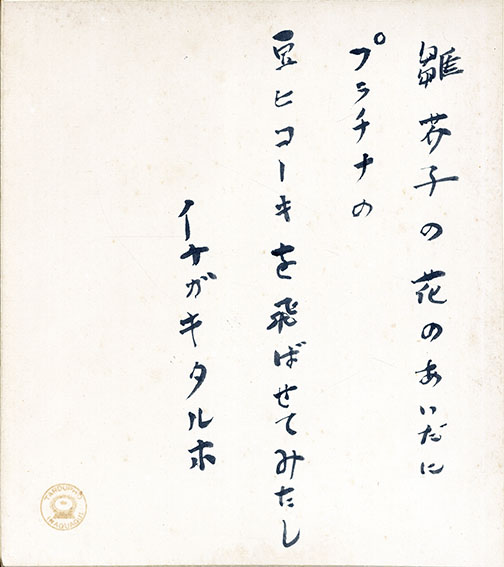 雛芥子の花のあいだに
プラチナの
豆ヒコーキを飛ばせてみたし
イナガキタルホ
TARUUPHO
INAGUAQUI